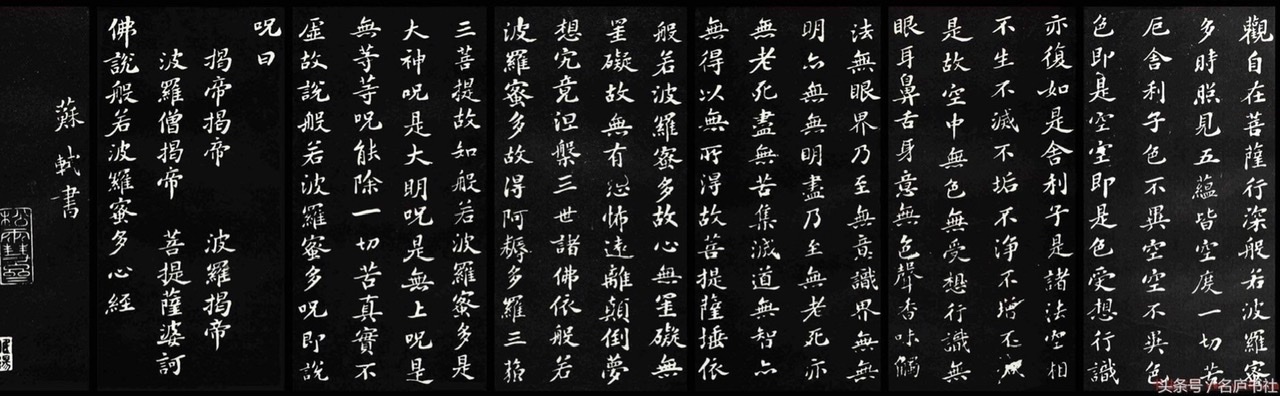 觀自在菩薩行深般若波羅蜜
多時照見五蘊皆空度一切苦
厄舍利子色不異空空不異色
色即是空空即是色受想行識
亦復如是舍利子是諸法空相
不生不滅不垢不淨不增不減
是故空中無色無受想行識無
眼耳鼻舌身意無色聲香味觸
法無眼界乃至無意識界無無
明亦無無明盡乃至無老死亦
無老死盡無苦集滅道無智亦
無得以無所得故菩提薩埵依
般若波羅蜜多故心無罣礙無
罣礙故無有恐怖遠離顛倒夢
想究竟涅槃三世諸佛依般若
波羅蜜多故得阿耨多羅三藐
三菩提故知般若波羅蜜多是
大神呪是大明呪是無上呪是
無等等呪能除一切苦真實不
虛故說般若波羅蜜多呪即說
呪曰
揭帝揭帝 波羅揭帝
波羅僧揭帝 菩提薩婆訶
佛說般若波羅蜜多心經
蘇軾書
头条号 / 名庐书社